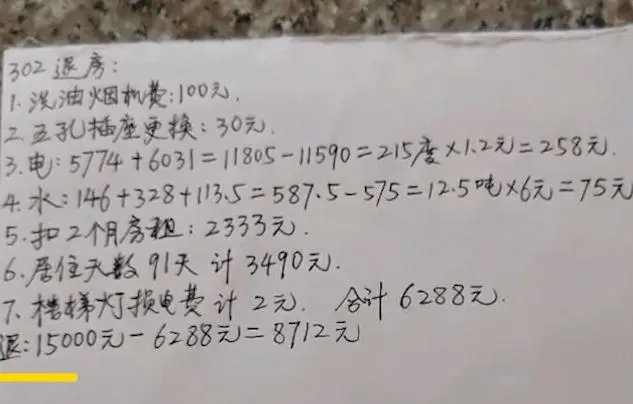 302退房:
1.洗油烟机费:100元.
2.五孔插座更换:30元.
3.电:5774+6031=11805-11590=215度×1.2元=258元.
4.水:146+328+113.5=587.5-575=12.5吨×6元=75元
5.扣2个月房租:2333元.
6.居住天数91天 计3490元.
7.楼梯灯损电费计2元. 合计6288元.
退:15000元-6288元=8712元